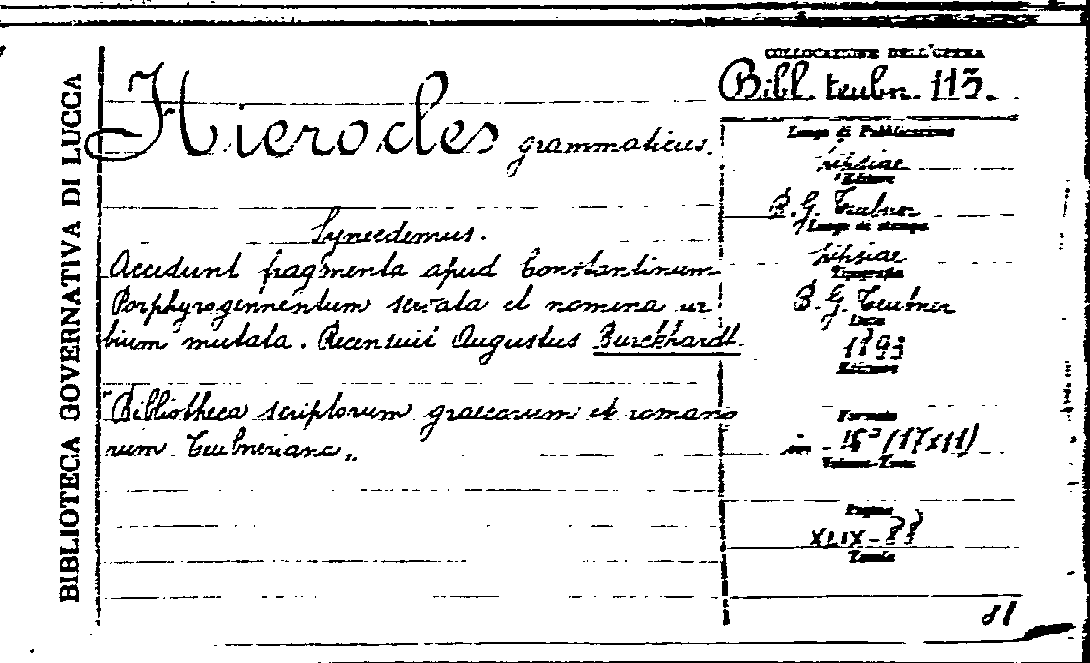 BIBLIOTECA GOVERNATIVA DI LUCCA
Hierocles grammaticus.
Synecdemus.
Accedunt fragmenta apud Constantinum
Porphyrogennentum servata et nomina ur-
bium mutata. Recensuit Augustus Burckhardt.
"Bibliotheca scriptorum graecorum et romano
rum Teubneriana„
COLLOCAZIONE DELL'OPERA
Bibl. teubn. 115.
Luogo di Pubblicazione
Lipsiae
Editore
B. G. Teubner
Luogo di stampa
Lipsiae
Tipografia
B. G. Teubner
Data
1893
Edizione
Formato
in - 16° (17x11)
Pagine
XLIX-88
Tavole